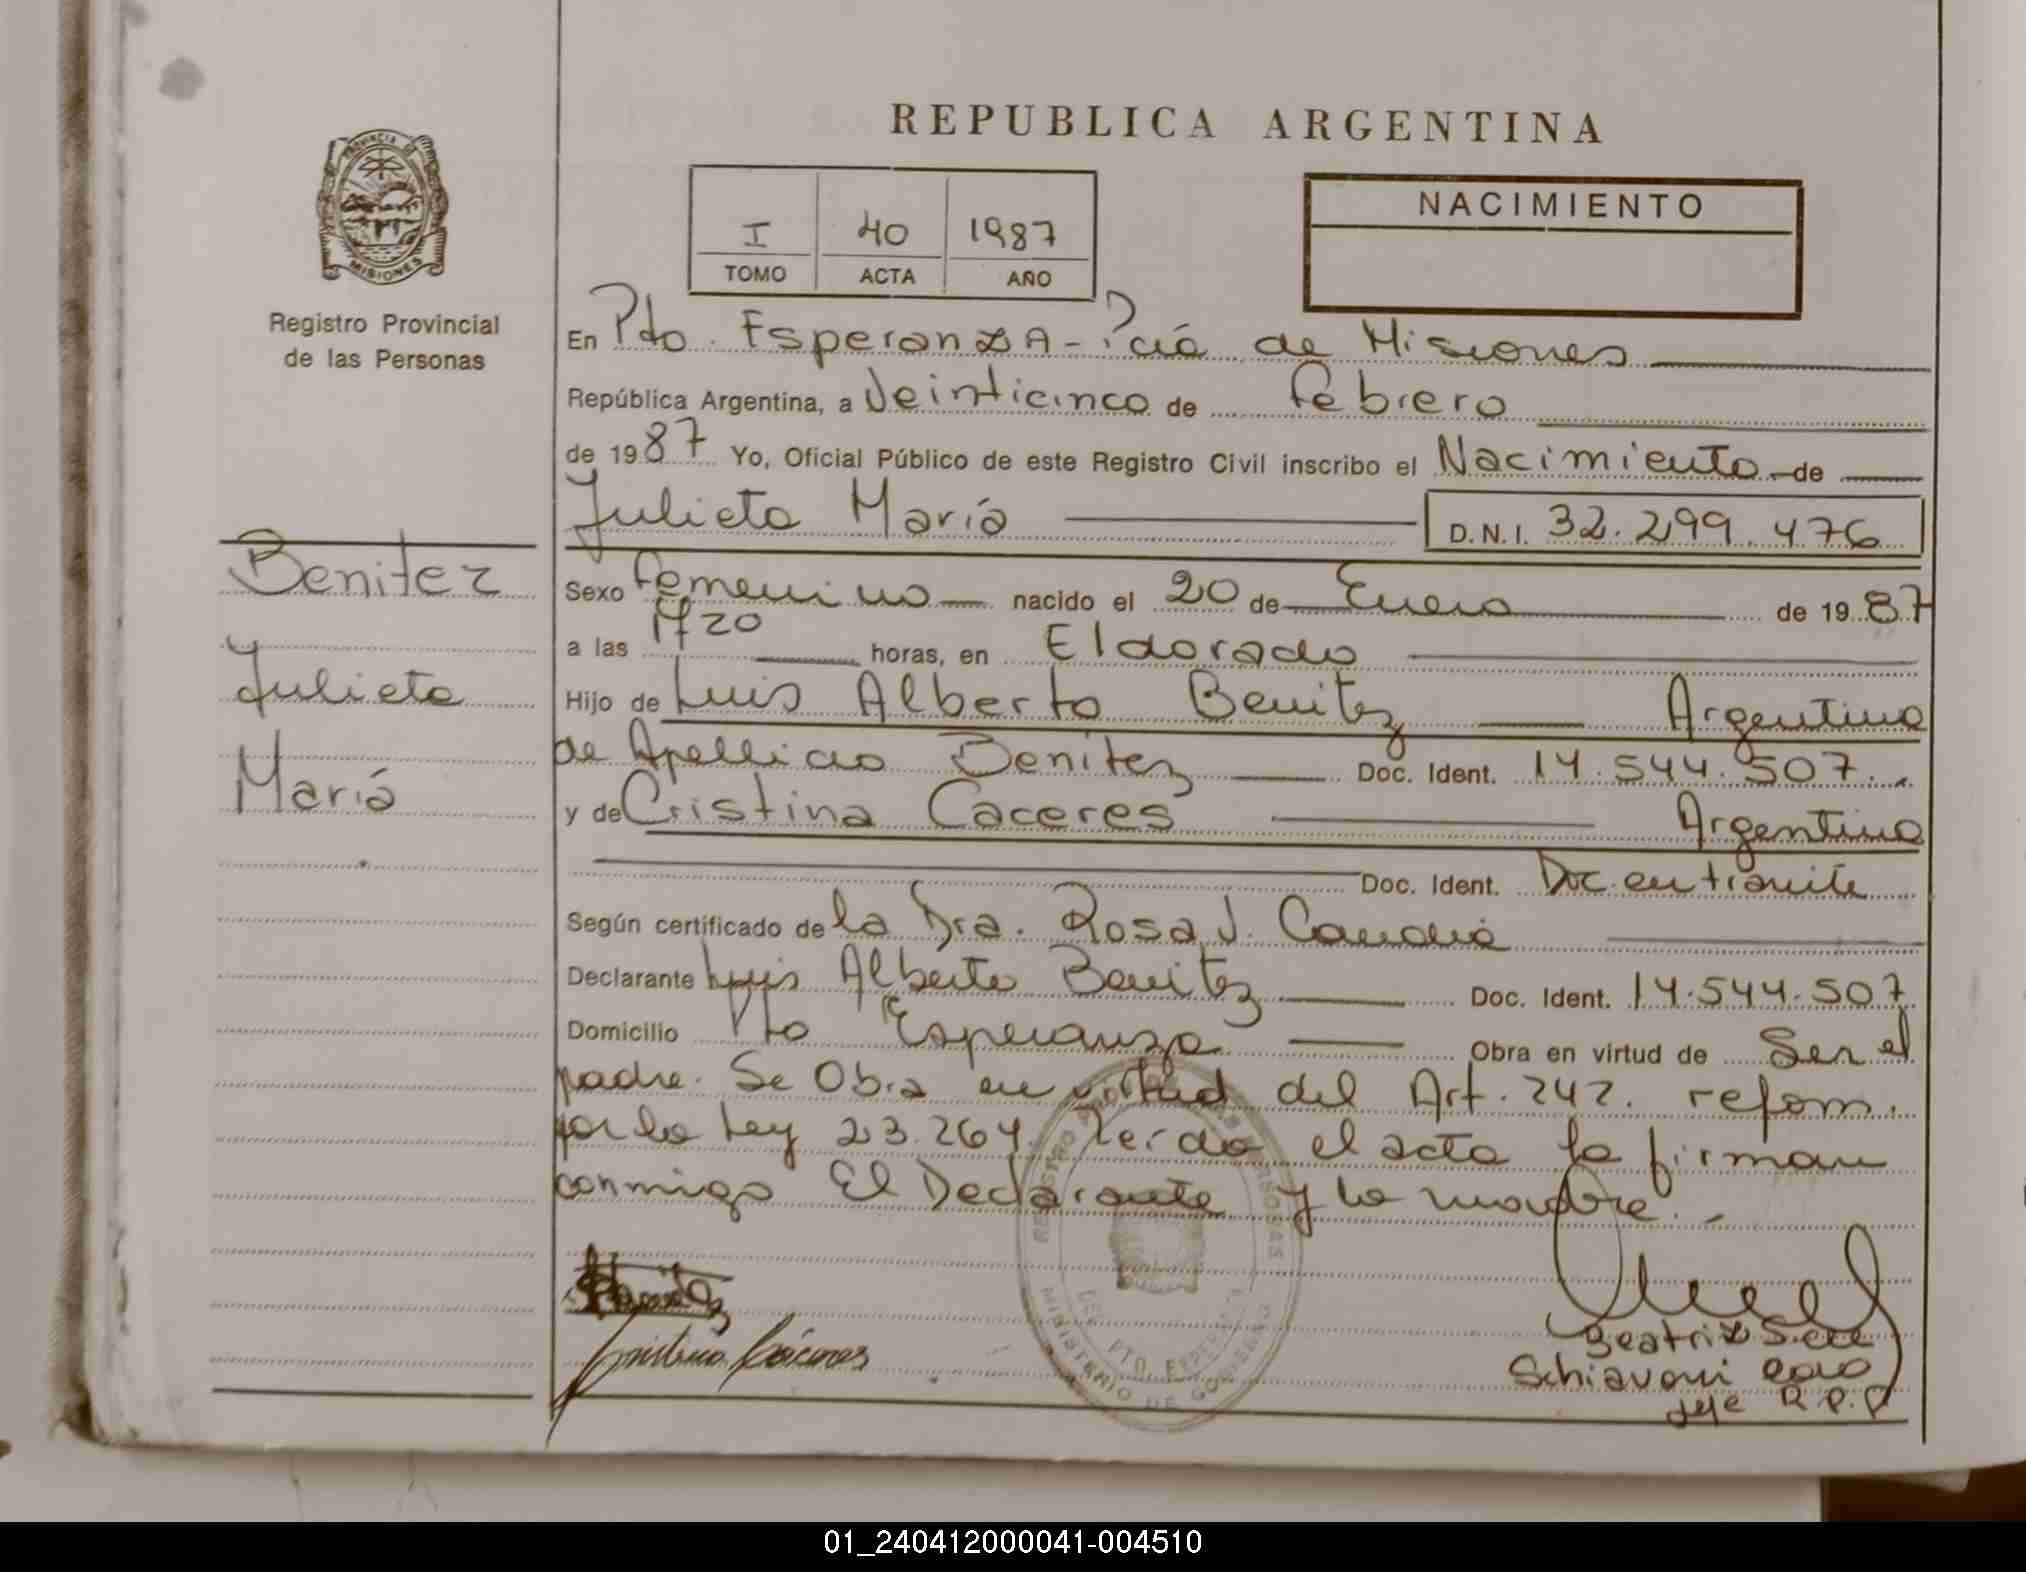 REPUBLICA ARGENTINA
PROVINCIA DE
MISIONES
Registro Provincial
de las Personas
I 40 1987
TOMO ACTA AÑO
NACIMIENTO
En Pto. Esperanza - Pcia de Misiones
República Argentina, a Veinticinco de Febrero
de 1987 Yo, Oficial Público de este Registro Civil inscribo el Nacimiento de
Julieta María D.N.I. 32.299.476
Benitez
Julieta
María
Sexo Femenino nacido el 20 de Enero de 1987
a las 1720 horas, en Eldorado
Hijo de Luis Alberto Benitez Argentino
de Apellido Benitez Doc. Ident. 14.544.507
y de Cristina Caceres Argentina
Doc. Ident. Doc. en tramite
Según certificado de la Dra. Rosa J.
Declarante Luis Alberto Benitez Doc. Ident. 14.544.507
Domicilio Pto Esperanza Obra en virtud de Ser el
padre. Se Obra en virtud del Art. 242. reform.
por la Ley 23.264. Leida el acta la firman
conmigo El Declarante y la madre.
REGISTRO
MINISTERIO DE GOBIERNO
PTO. ESPERANZA
Benitez
Cristina Cáceres
Beatriz
Schiavoni
Jefe R.P.P
01_240412000041-004510